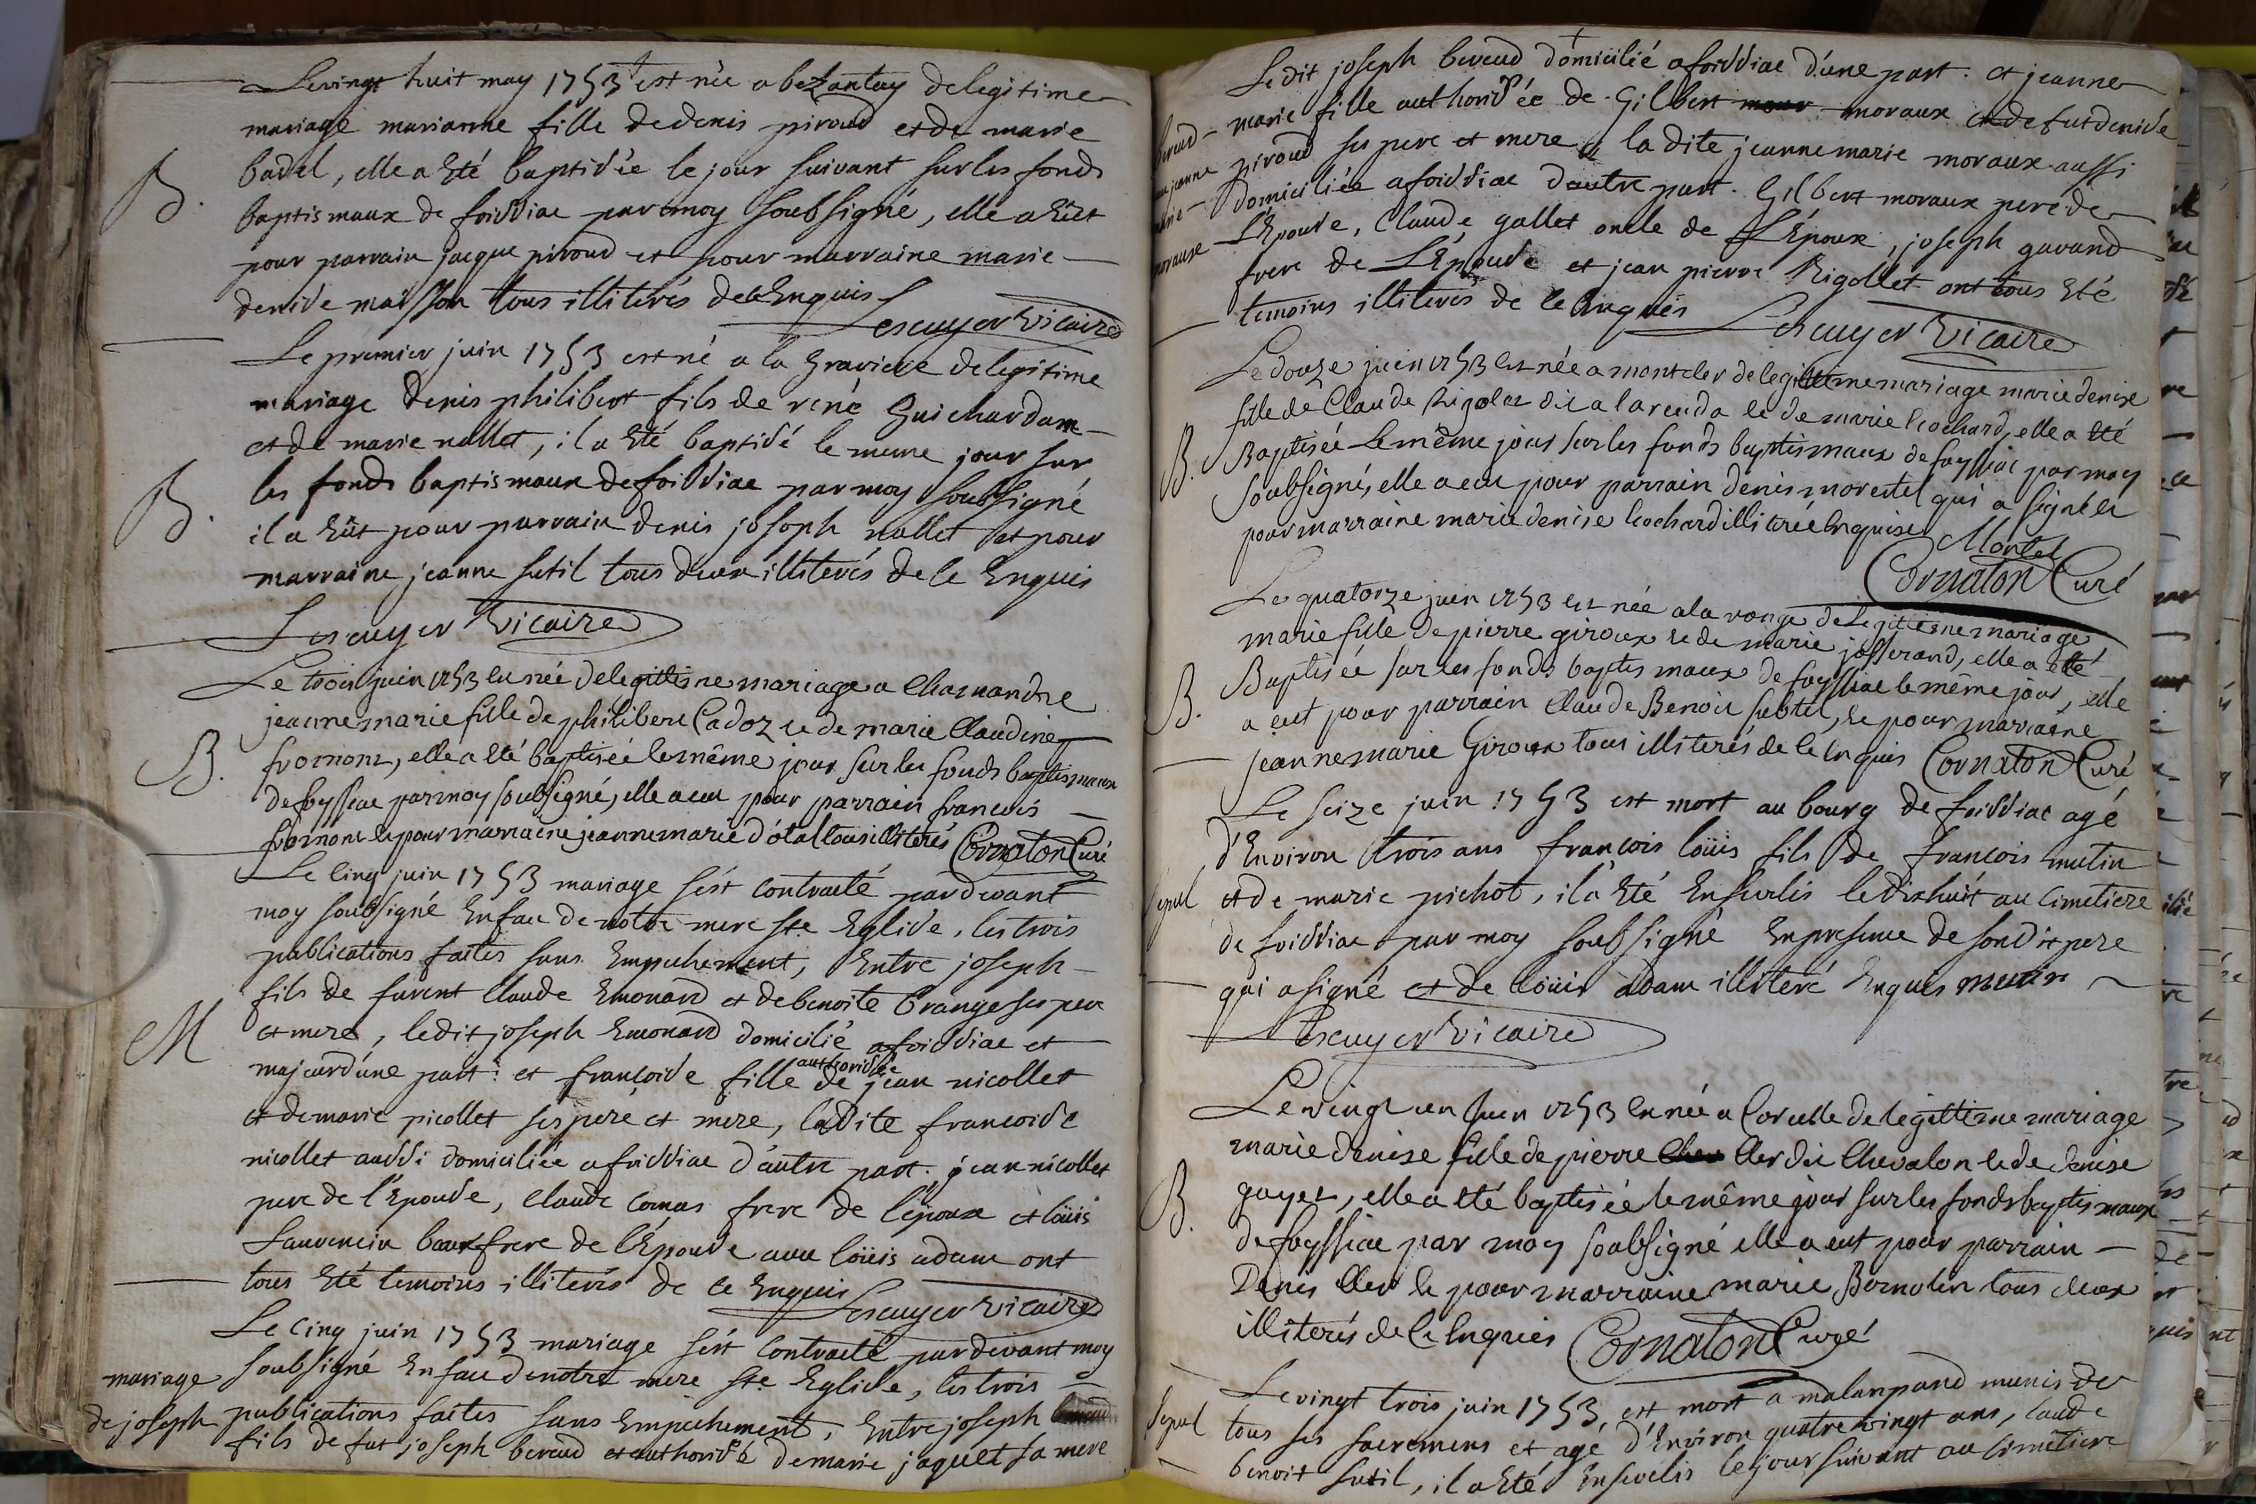 Le vingt huit may 1753 est née a bezantay de legitime
mariage marianne fille de denis piroud et de marie
badel, elle a Eté baptisée le jour suivant sur les fonds
B.
baptismaux de foissiac par moy soubsigné, elle a Eüt
pour parrain jacque piroud et pour marraine marie
denise maisson tous illiterés de le Enquis
Lescuyer Vicaire
Le premier juin 1753 est né a la graviere de legitime
mariage denis philibert fils de réné Guichardam
et de marie nallet, il a Eté baptisé le meme jour sur
B.
les fonds baptismaux de foissiac par moy soubsigné
il a Eüt pour parrain denis joseph nallet et pour
marraine jeanne sutil tous deux illiterés de ce Enquis
Lescuyer Vicaire
Le trois juin 1753 est née de legittime mariage a Charnandre
jeanne marie fille de philibert Cadoz et de marie Claudine
fromont, elle a eté baptisée le même jour sur les fonds baptismaux
B.
de foyssiac par moy soubsigné, elle a eu pour parrain francois
fromont et pour marraine jeanne marie d'otal tous illiterés Cornaton Curé
Le Cinq juin 1753 mariage s'ést Contracté pardevant
moy soubsigné En face de notre mere Ste Eglise, les trois
publications faites sans Empechement, Entre joseph
fils de furent Claude Emonard et de benoite brange ses pere
M
et mere, ledit joseph Emonard domicilié a foissiac et
majeur d'une part: et francoise fille authorisée de jean nicollet
et de marie picollet ses pere et mere, ladite francoise
nicollet aussi domiciliée a foissiac d'autre part. jean nicollet
pere de l'Epouse, Claude comas frere de l'époux et loüis
Sauvencin beaufrere de l'Epouse avec loüis adam ont
tous Eté temoins illiterés de ce Enquis
Lescuyer Vicaire
Le Cinq juin 1753 mariage s'ést Contracté pardevant moy
mariage
soubsigné En face de notre mere Ste Eglise, les trois
de joseph
publications faites sans Empechement, Entre joseph
fils de fut joseph bereud et authorisé de marie jaquet sa mere
Le dit joseph bereud domicilié a foissiac d'une part. et jeanne
bereud
marie fille authorisée de Gilbert moraux et de fut denise
jeanne
piroud ses pere et mere la dite jeanne marie moraux aussi
marie
domiciliée a foissiac d'autre part. Gilbert moraux pere de
moraux
L'Epouse, Claude gallet oncle de L'Epoux, joseph gavand
frere de L'Epouse et jean pierre Rigollet ont tous Eté
temoins illiterés de le Enquis
Lescuyer Vicaire
Le douze juin 1753 est née a montcler de legittime mariage marie denise
fille de Claude Rigolet dit a la renda et de marie Cochard, elle a eté
B.
Baptisée le même jour sur les fonds baptismaux de foyssiac par moy
soubsigné, elle a eu pour parrain denis morestel qui a signé et
pour marraine marie denise Cochard illiterée Enquise
Cornaton Curé
Le quatorze juin 1753 est née a la ronge de legittime mariage
marie fille de pierre giroux et de marie josserand, elle a eté
Baptisée sur les fonds baptismaux de foyssiac le même jour, elle
B.
a eut pour parrain Claude Benoit subtil, et pour marraine
jeanne marie Giroux tous illiterés de le Enquis Cornaton Curé
Le seize juin 1753 est mort au bourg de foissiac agé
d'Environ trois ans françois loüis fils de françois mutin
Sepul
et de marie pichot, il a Eté Ensevelis le dixhuit au cimetiere
de foissiac par moy soubsigné En presence de son dit pere
qui a signé et de loüis adam illiteré Enquis mutin
Lescuyer Vicaire
Le vingt un juin 1753 est née a Corcelle de legittime mariage
marie denise fille de pierre Cler dit Chevalon et de denise
gayet, elle a eté baptisée le même jour sur les fonds baptismaux
B.
de foyssiac par moy soubsigné elle a eut pour parrain
Denis Cler et pour marraine marie Bernolin tous deux
illiterés de Ce Enquies Cornaton Curé
Le vingt trois juin 1753, est mort a malanpand munis de
Sepul
tous ses sacremens et agé d'Environ quatre vingt ans, Claude
benoit sutil, il a Eté Ensevelis le jour suivant au cimetiere